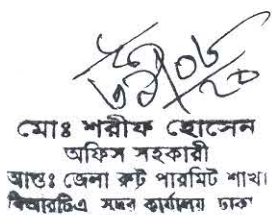 মোঃ শরীফ হোসেন
অফিস সহকারী
আন্তঃ জেলা রুট পারমিট শাখা
বিআরটিএ সদর কার্যালয় ঢাকা